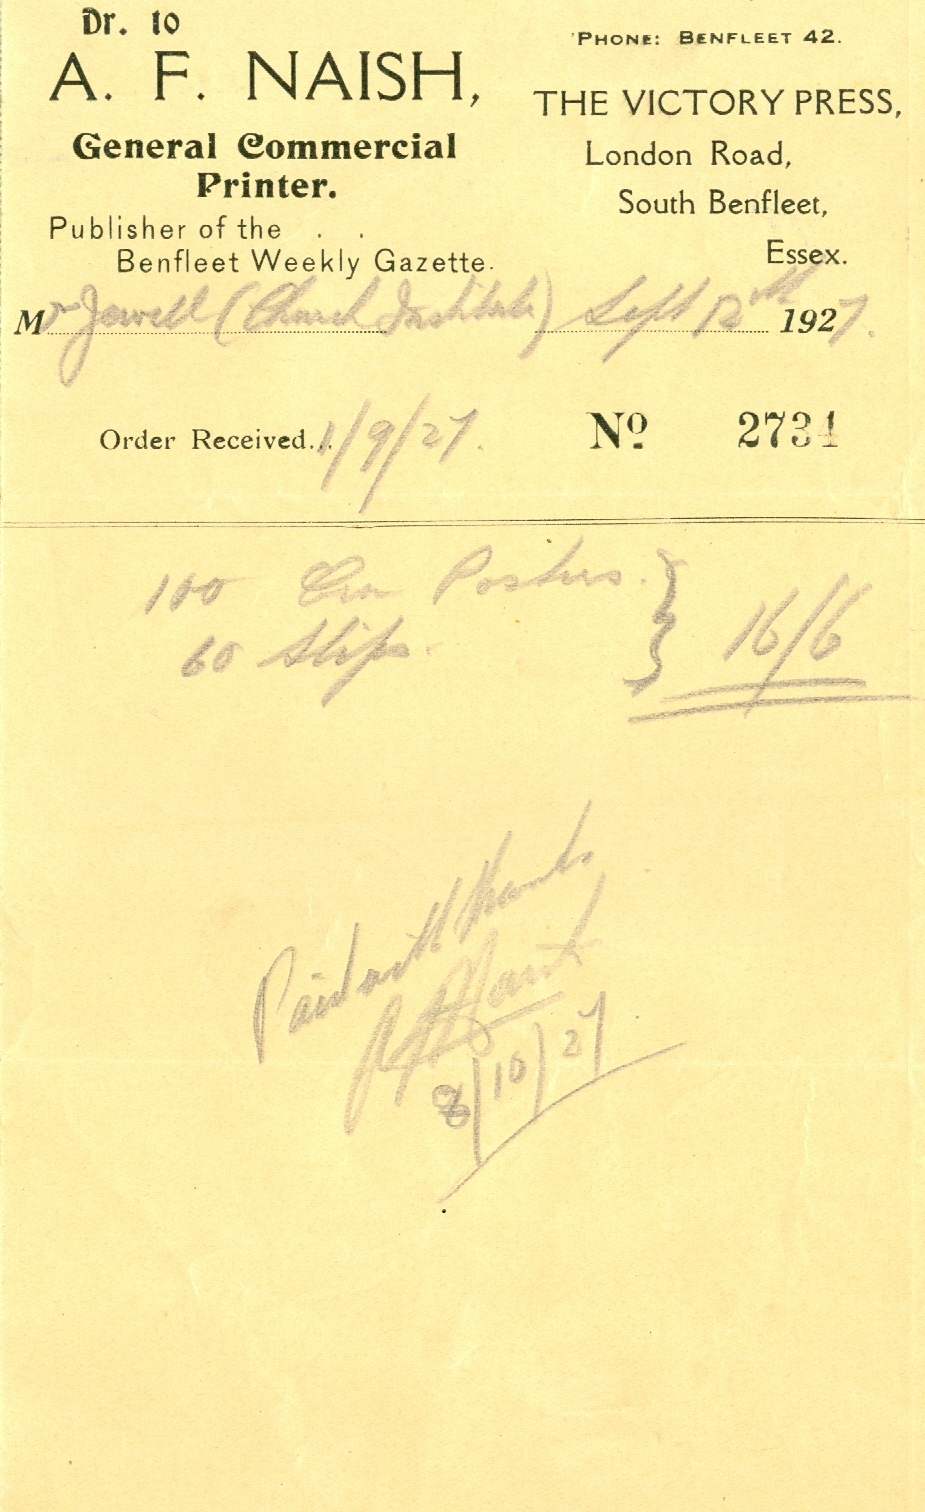 Dr. to
A. F. NAISH,
General Commercial
Printer.
Publisher of the . .
Benfleet Weekly Gazette.
'PHONE: BENFLEET 42.
THE VICTORY PRESS,
London Road,
South Benfleet,
Essex.
Mr Jowell (Church Institute) Sept 12th 1927.
Order Received... 1/9/27. No 2734
100 Posters. } 16/6
60 Slips.
Paid with thanks
A F Naish
8/10/27